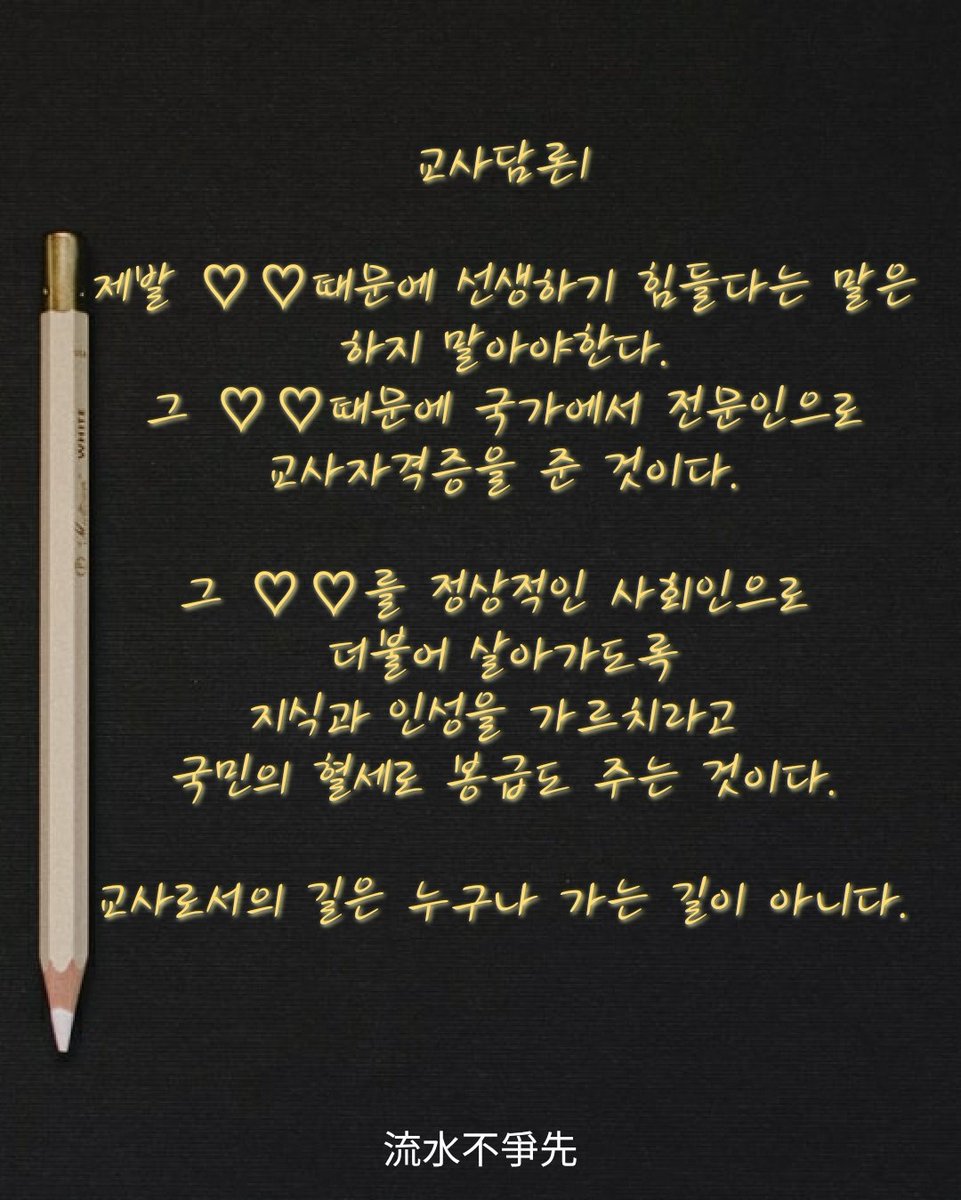 교사담론1
제발 ♡♡때문에 선생하기 힘들다는 말은
하지 말아야한다.
그 ♡♡때문에 국가에서 전문인으로
교사자격증을 준 것이다.
그 ♡♡를 정상적인 사회인으로
더불어 살아가도록
지식과 인성을 가르치라고
국민의 혈세로 봉급도 주는 것이다.
교사로서의 길은 누구나 가는 길이 아니다.
WHITE
流水不爭先